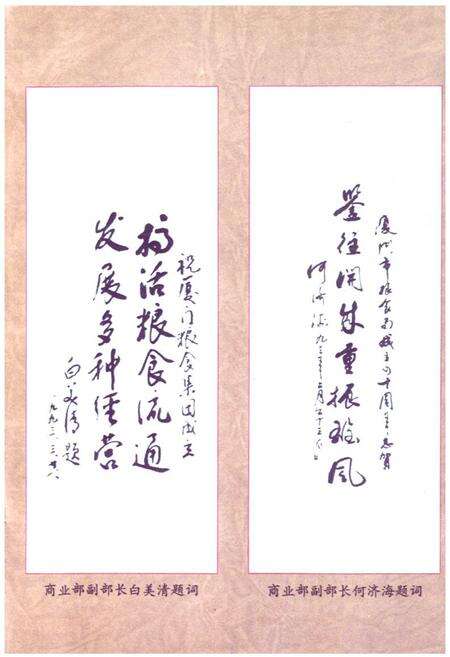 祝厦门粮食集团成立
搞活粮食流通
发展多种经营
白美清题
一九九三.三.廿八
商业部副部长白美清题词
厦门市粮食局成立四十周年志贺
鉴往开来重振雄风
何济海
商业部副部长何济海题词